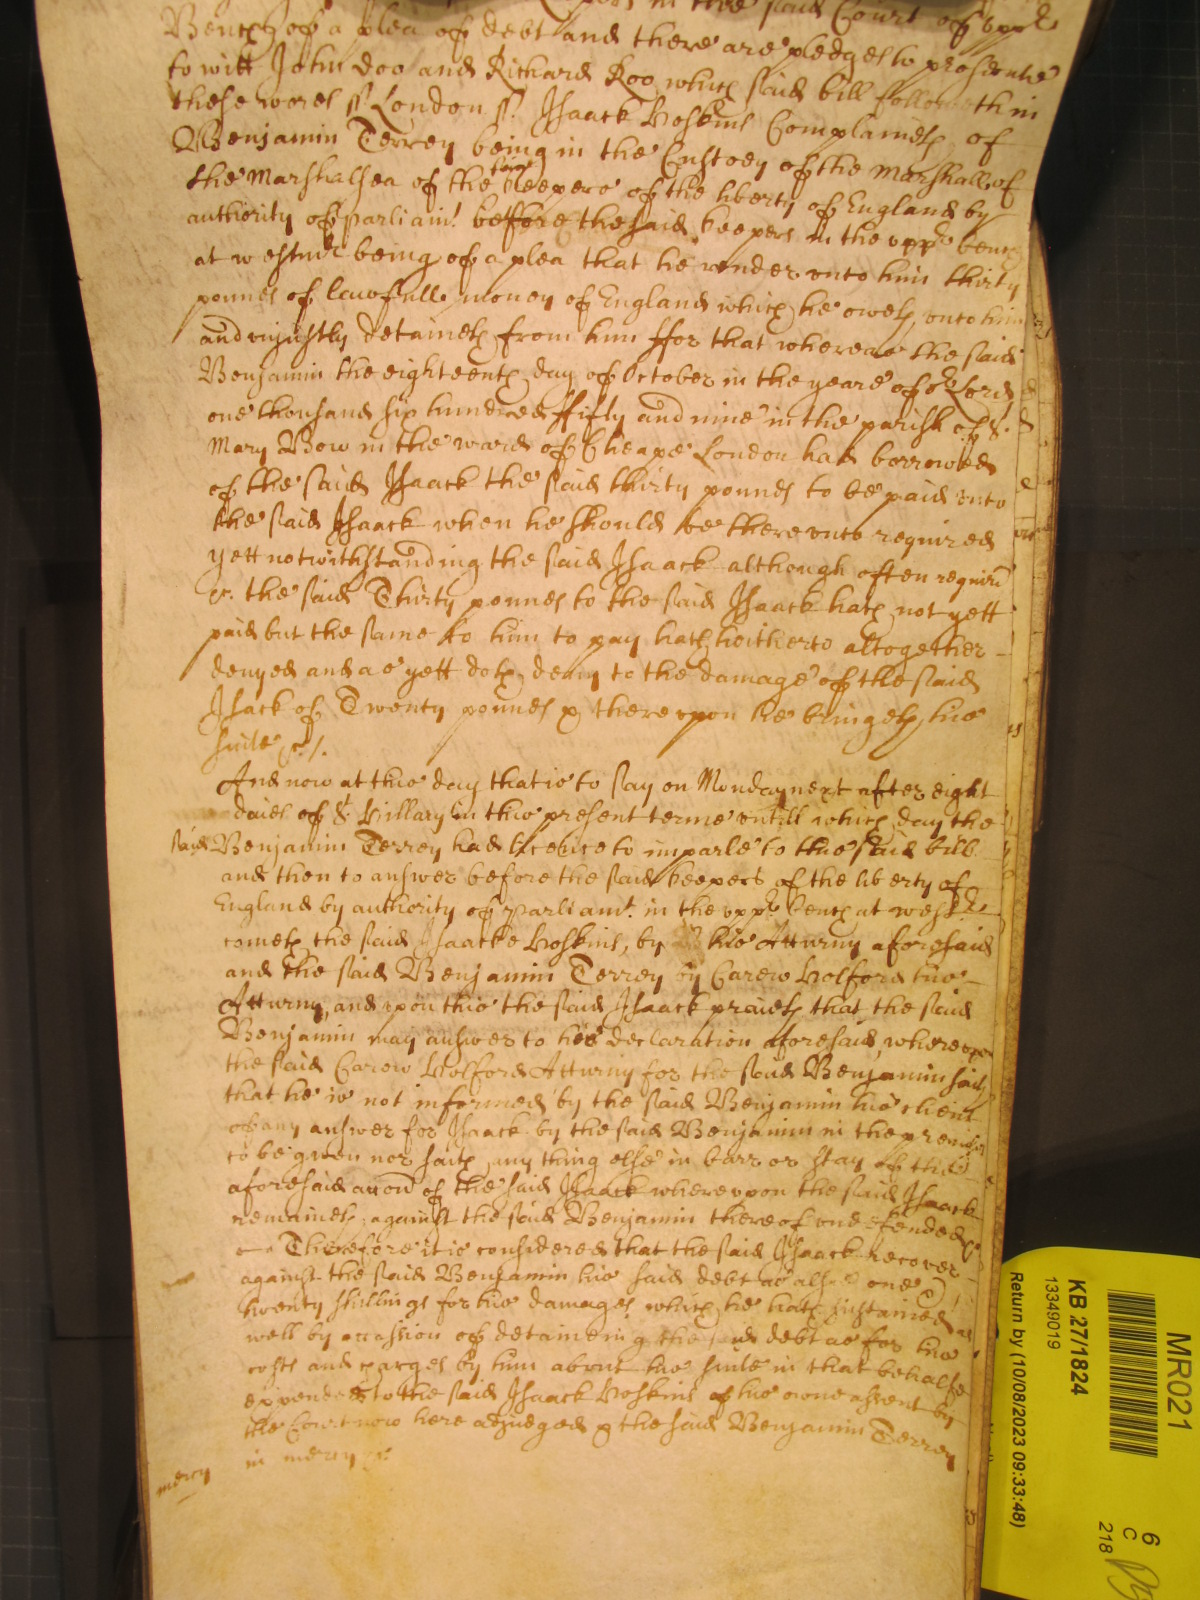 in the said Court of upp
Bench of a plea of debt and there are pledges to prosecute
to witt John Doo and Richard Roo which said bill followeth in
these words ss London ss. Isaack Hoskins Complaineth of
Benjamin Terrey being in the Custody of the Marshall of
the Marshalsea of the said keepers of the liberty of England by
authority of parliamt. before the said keepers in the uppr bench
at westmr being of a plea that he render unto him thirty
pounds of lawfull money of England which he oweth unto him
and unjustly detaineth from him ffor that whereas the said
Benjamin the eighteenth day of October in the yeare of or Lord
one thousand six hundred ffifty and nine in the parish of St.
Mary Bow in the ward of Cheape London had borrowed
of the said Isaack the said thirty pounds to be paid unto
the said Isaack when he should be thereunto required
yett notwithstanding the said Isaack although often requird
&c. the said Thirty pounds to the said Isaack hath not yett
paid but the same to him to pay hath hitherto altogether
denyed and as yett doth deny to the damage of the said
Isack of Twenty pounds & thereupon he bringeth his
suite &c/.
And now at this day that is to say on Monday next after eight
daies of St. Hillary in this present terme untill which day the
said Benjamin Terrey had licence to imparle to the said bill
and then to answer before the said keepers of the liberty of
England by authority of Parliamt. in the uppr bench at westmr
cometh the said Isaacke Hoskins, by his Atturny aforesaid
and the said Benjamin Terrey by Carew Holford his
Atturny, and upon this the said Isaack praieth that the said
Benjamin may answer to his declaration aforesaid, whereupon
the said Carew Holford Atturny for the said Benjamin saith
that he is not informed by the said Benjamin his client
of any answer for Isaack by the said Benjamin in the premises
to be given nor saith any thing else in barr or stay of the
aforesaid accon of the said Isaack whereupon the said Isaack
remaineth against the said Benjamin thereof undefended &c
Therefore it is considered that the said Isaack recover
against the said Benjamin his said debt as also one &
twenty shillings for his damages which he hath sustained as
well by occassion of detaineing the said debt as for his
costs and charges by him about his suite in that behalfe
expended to the said Isaack Hoskins of his owne assent by
the Court now here adjudged & the said Benjamin Terrey
in mercy &c
mercy
MR021
KB 27/1824
13349019
Return by (10/08/2023 09:33:48)
6
C
218